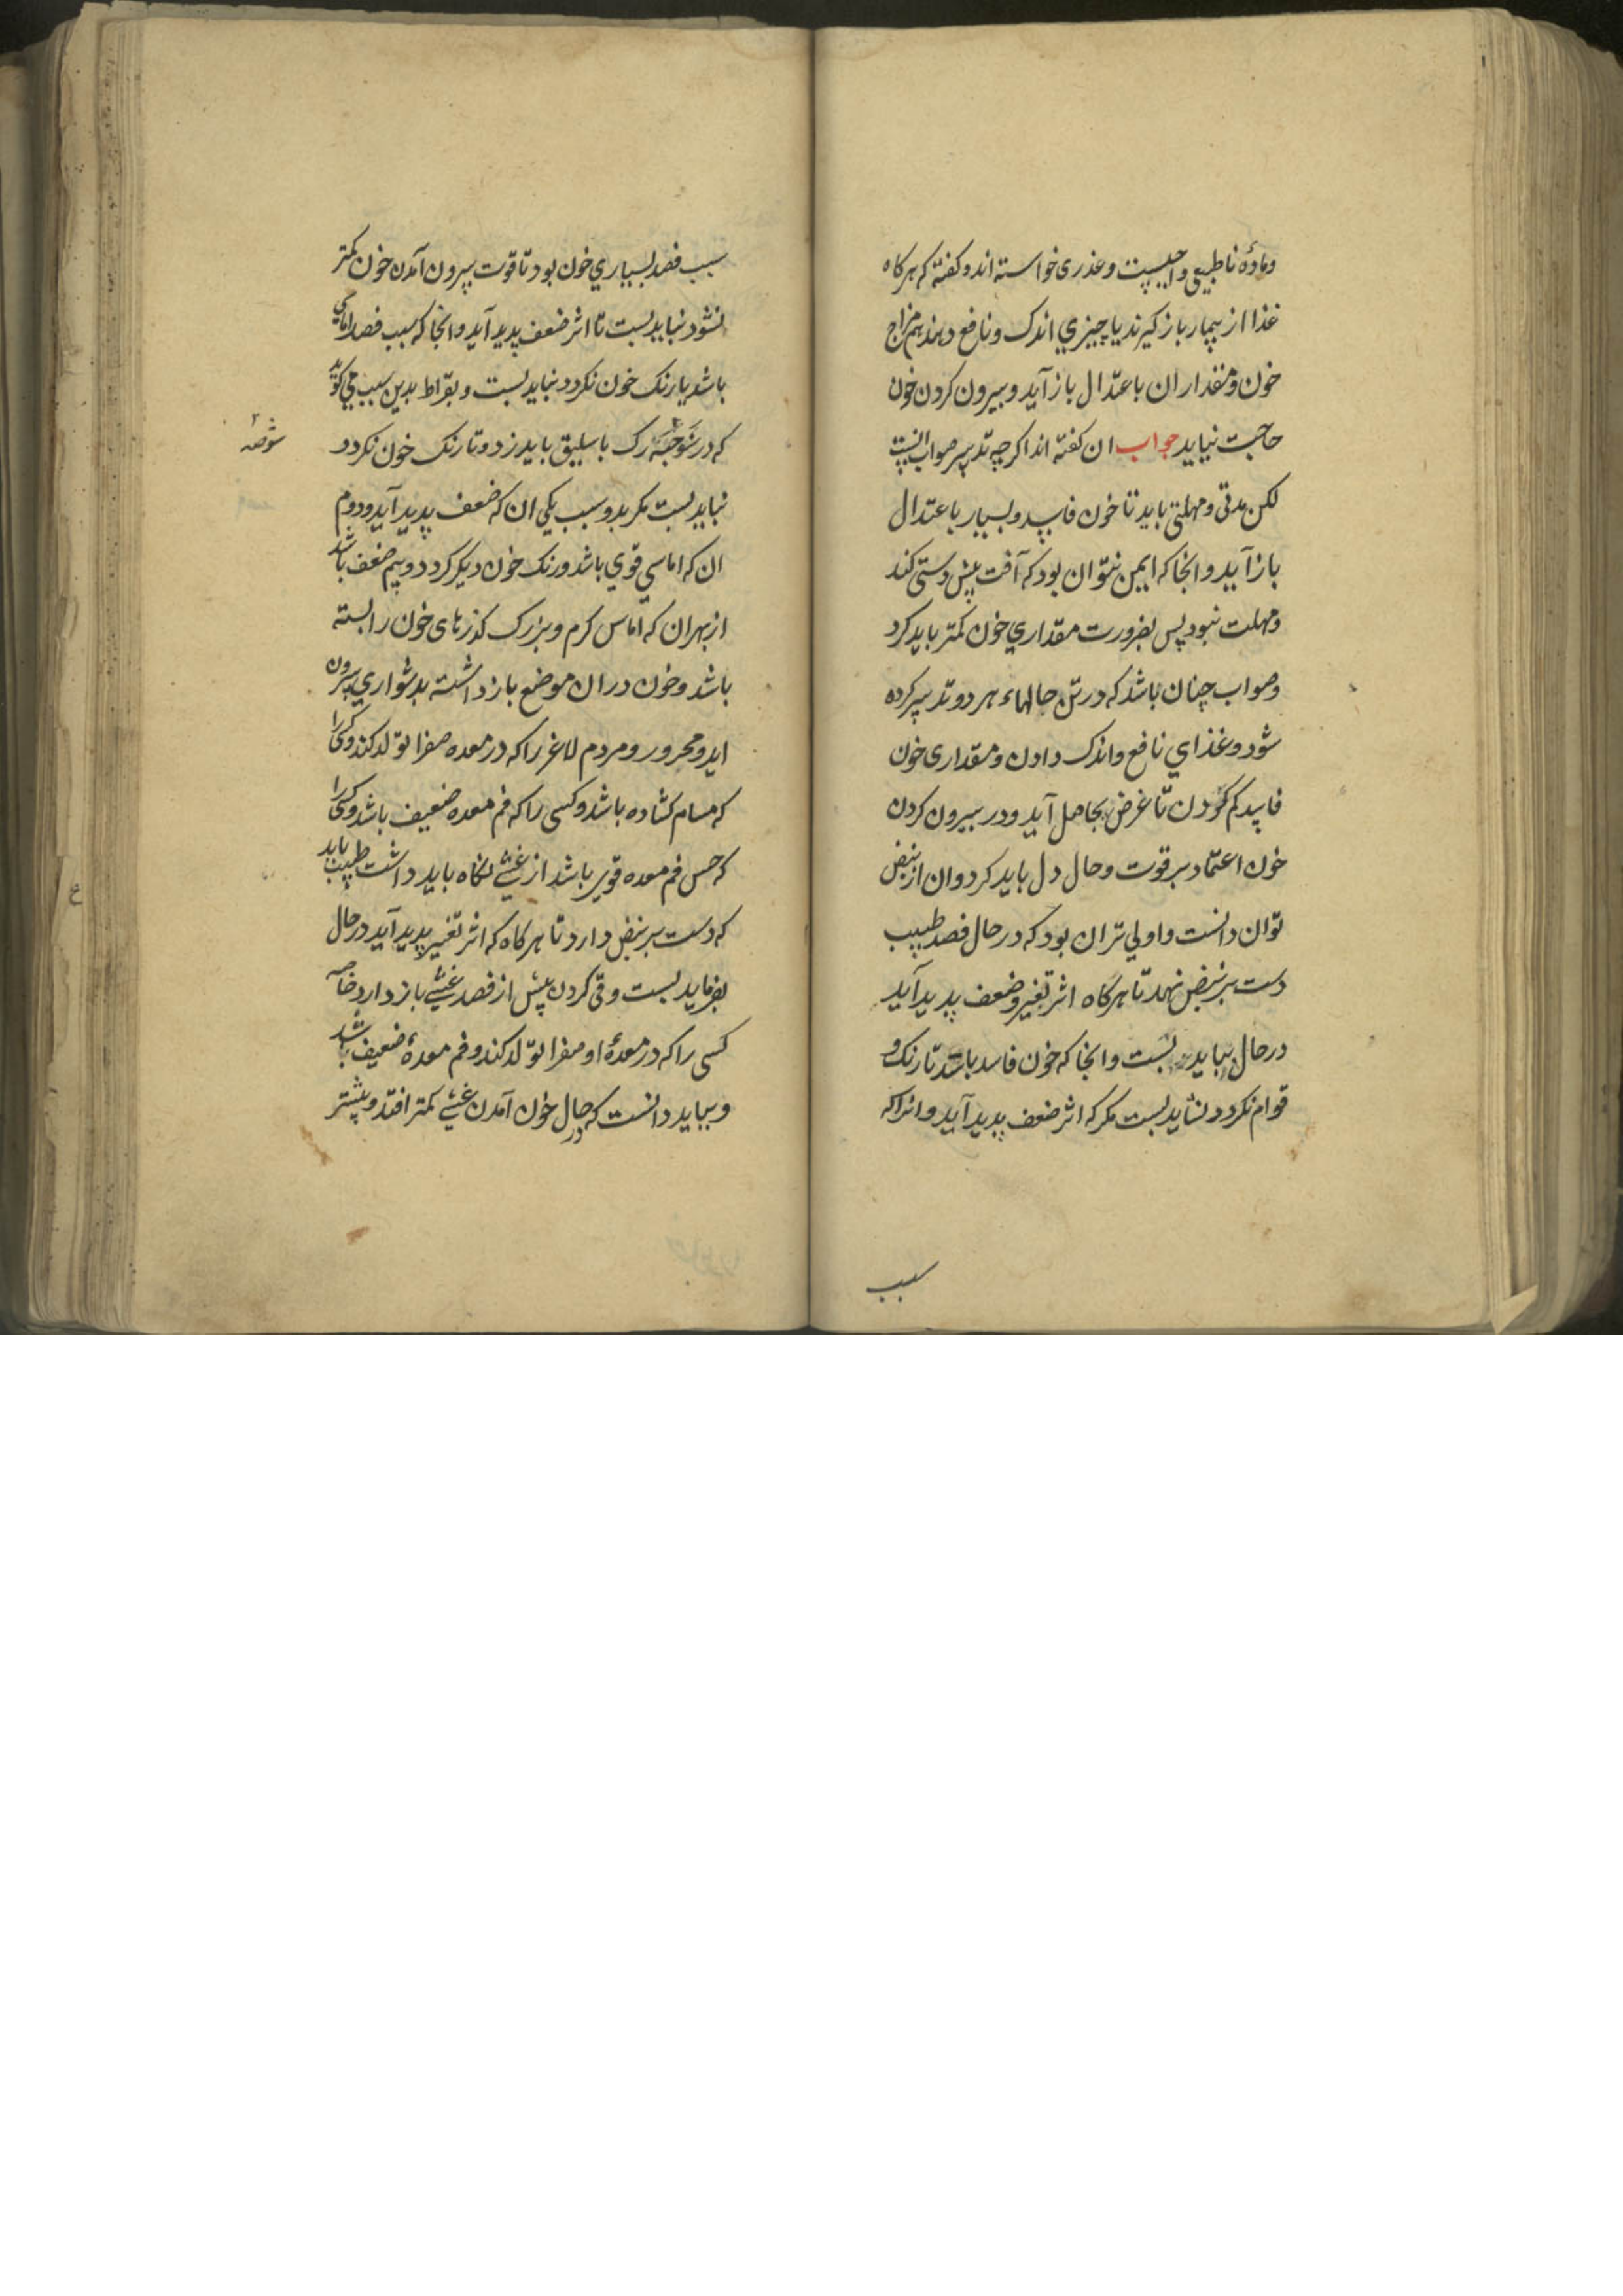 وماده ناطبیعی واجبست وعذری خواسته اند وکفته که هرکاه
غذا از بیمار باز کیرند یا چیزي اندک ونافع دهند هم مزاج
خون ومقدار ان باعتدال باز آید وبیرون کردن خون
حاجت نیاید جواب ان کفته اند اکرچه تدبیر صواب اینست
لکن مدتی ومهلتی باید تا خون فاسد وبسیار باعتدال
باز آید وانجا که ایمن نتوان بود که آفت پیش دستی کند
ومهلت نبود پس بضرورت مقداري خون کمتر باید کرد
وصواب چنان باشد که درین حالهاء هر دو تدبیر کرده
شود وغذاي نافع واندک دادن ومقداری خون
فاسد کم کردن تا غرض بحاصل آید ودر بیرون کردن
خون اعتماد بر قوت وحال دل باید کرد وان از نبض
توان دانست واولي تر ان بود که در حال فصد طبیب
دست بر نبض نهد تا هرکاه اثر تغیر وضعف پدید آید
درحال بباید بست وانجا که خون فاسد باشد تا رنک و
قوام نکردد نشاید بست مکر که اثر ضعف پدید آید وانرا که
سبب
سبب فصد بسیاري خون بود تا قوت بیرون آمدن خون کمتر
نشود نباید بست تا اثر ضعف پدید آید وانجا که سبب فصد اماسي
باشد یا رنک خون نکردد نباید بست وبقراط بدین سبب مي کوید
که در شوصه رک باسلیق باید زد وتا رنک خون نکردد
شوصه
نباید بست مکر بدو سبب یکي ان که ضعف پدید آید ودوم
ان که اماسي قوي باشد ورنک خون دیکر کردد وبیم ضعف باشد
از بهر ان که اماس کرم وبزرک کذرهای خون را بسته
باشد وخون در ان موضع باز داشته بدشواري بیرون
اید ومحرور ومردم لاغر را که در معده صفرا تولد کند وکسی را
که مسام کشاده باشد وکسی را که فم معده ضعیف باشد وکسی را
که حس فم معده قوي باشد از غشي نکاه باید داشت طبیب باید
که دست بر نبض دارد تا هرکاه که اثر تغییر پدید آید درحال
بفرماید بست وقی کردن پیش از فصد غشي باز دارد خاصه
کسی را که در معدهٔ او صفرا تولد کند وفم معدهٔ ضعیف باشد
وبباید دانست که در حال خون آمدن غشي کمتر افتد وبیشتر